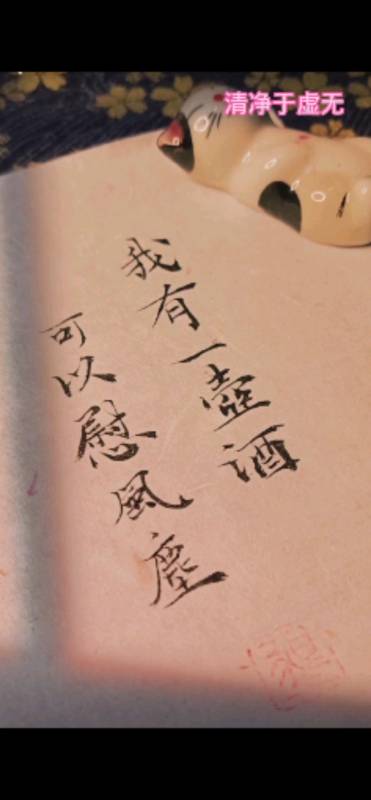 清净于虚无
我有一壺酒
可以慰風塵